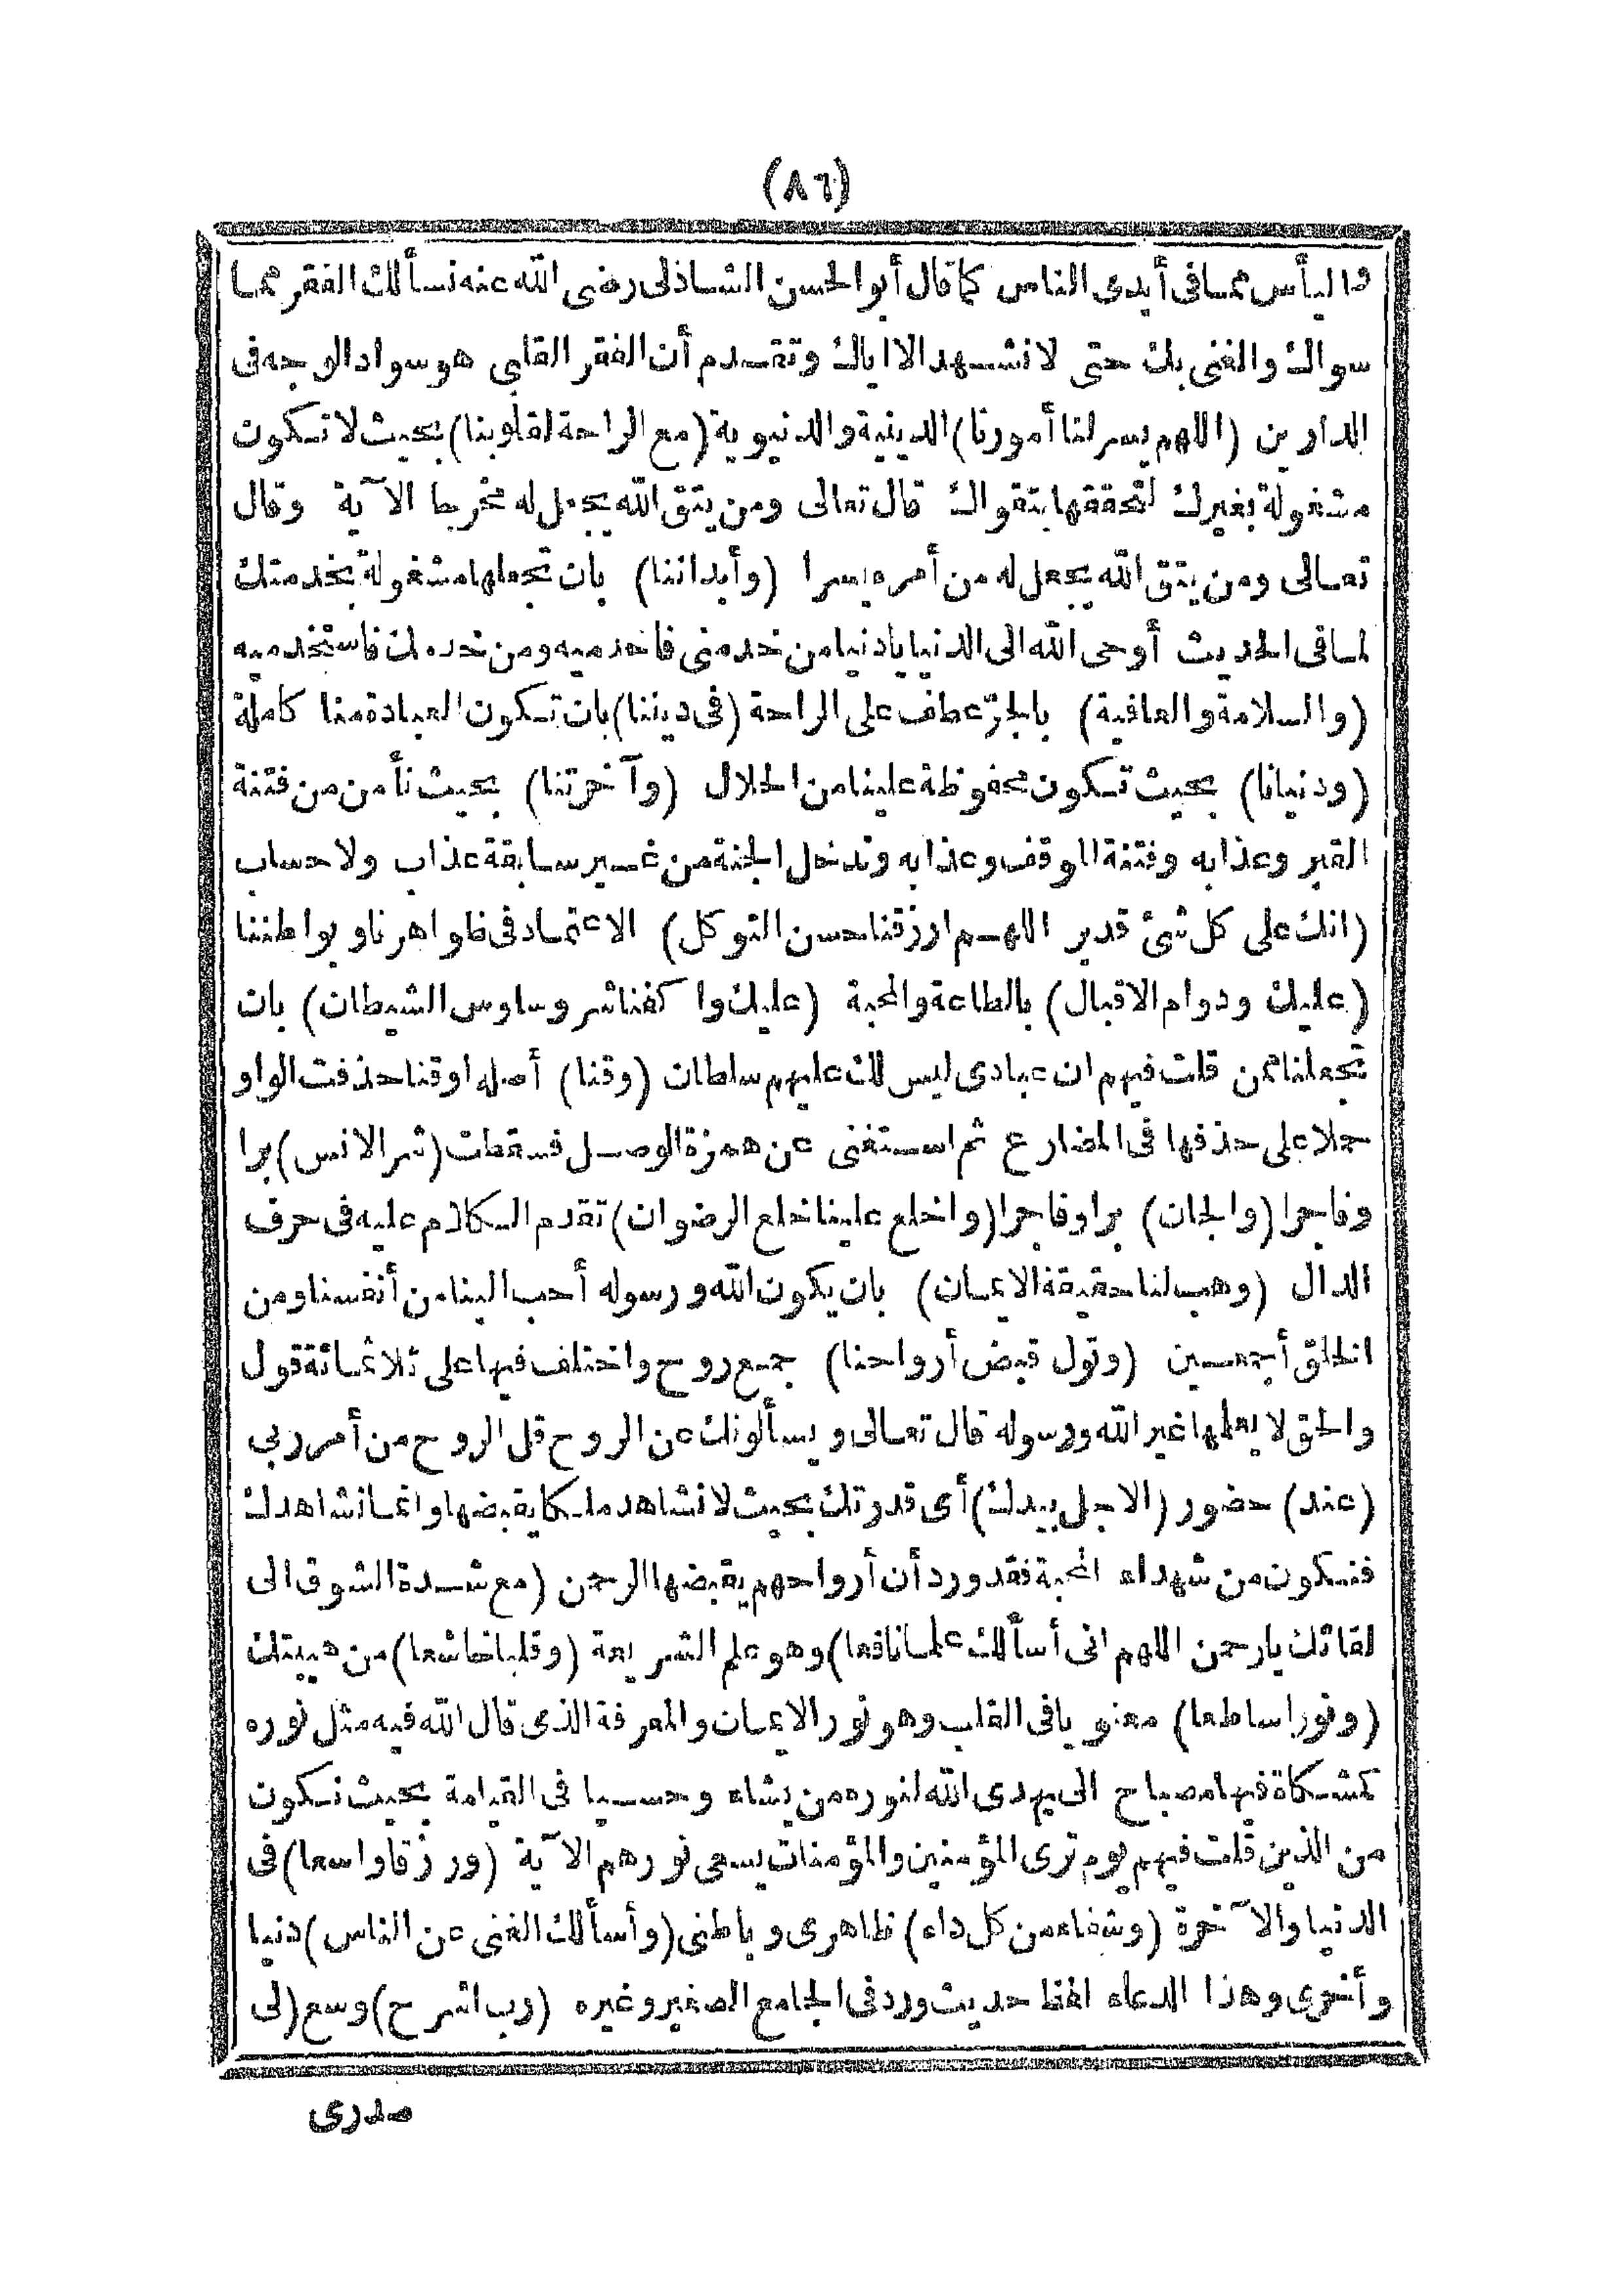 (٨٦)
واليأس مما فى أيدى الناس كما قال أبو الحسن الشاذلى رضى الله عنه نسألك الفقر مما
سواك والغنى بك حتى لا نشهد الا اياك وتقدم أن الفقر القلبى هو سواد الوجه فى
الدارين (اللهم يسر لنا أمورنا) الدينية والدنيوية (مع الراحة لقلوبنا) بحيث لا تكون
مشغولة بغيرك لتحققها بتقواك قال تعالى ومن يتق الله يجعل له مخرجا الآية وقال
تعالى ومن يتق الله يجعل له من أمره يسرا (وأبداننا) بان تجعلها مشغولة بخدمتك
لما فى الحديث أوحى الله الى الدنيا يا دنيا من خدمنى فاخدميه ومن خدمك فاستخدميه
(والسلامة والعافية) بالجرّ عطف على الراحة (فى ديننا) بان تكون العبادة منا كاملة
(ودنيانا) بحيث تكون محفوظة علينا من الحلال (وآخرتنا) بحيث نأمن من فتنة
القبر وعذابه وفتنة الموقف وعذابه وندخل الجنة من غير سابقة عذاب ولا حساب
(انك على كل شئ قدير اللهم ارزقنا حسن التوكل) الاعتماد فى ظواهرنا وبواطننا
(عليك ودوام الاقبال) بالطاعة والمحبة (عليك واكفنا شر وساوس الشيطان) بان
تجعلنا ممن قلت فيهم ان عبادى ليس لك عليهم سلطان (وقنا) أصله اوقنا حذفت الواو
حملا على حذفها فى المضارع ثم استغنى عن همزة الوصل فسقطت (شر الانس) برا
وفاجرا (والجان) برا وفاجرا (واخلع علينا خلع الرضوان) تقدم الكلام عليه فى حرف
الدال (وهب لنا حقيقة الايمان) بان يكون الله ورسوله أحب الينا من أنفسنا ومن
الخلق أجمعين (وتول قبض أرواحنا) جمع روح واختلف فيها على ثلاثمائة قول
والحق لا يعلمها غير الله ورسوله قال تعالى ويسألونك عن الروح قل الروح من أمر ربى
(عند) حضور (الاجل بيدك) أى قدرتك بحيث لا نشاهد ملكا يقبضها وانما نشاهدك
فنكون من شهداء المحبة فقد ورد أن أرواحهم يقبضها الرحمن (مع شدة الشوق الى
لقائك يا رحمن اللهم انى أسألك علما نافعا) وهو علم الشريعة (وقلبا خاشعا) من هيبتك
(ونورا ساطعا) معنويا فى القلب وهو نور الايمان والمعرفة الذى قال الله فيه مثل نوره
كمشكاة فيها مصباح الى يهدى الله لنوره من يشاء وحسيا فى القيامة بحيث نكون
من الذين قلت فيهم يوم ترى المؤمنين والمؤمنات يسعى نورهم الآية (ورزقا واسعا) فى
الدنيا والآخرة (وشفاء من كل داء) ظاهرى وباطنى (وأسألك الغنى عن الناس) دنيا
وأخرى وهذا الدعاء لفظ حديث ورد فى الجامع الصغير وغيره (رب اشرح) وسع (لى
صدرى